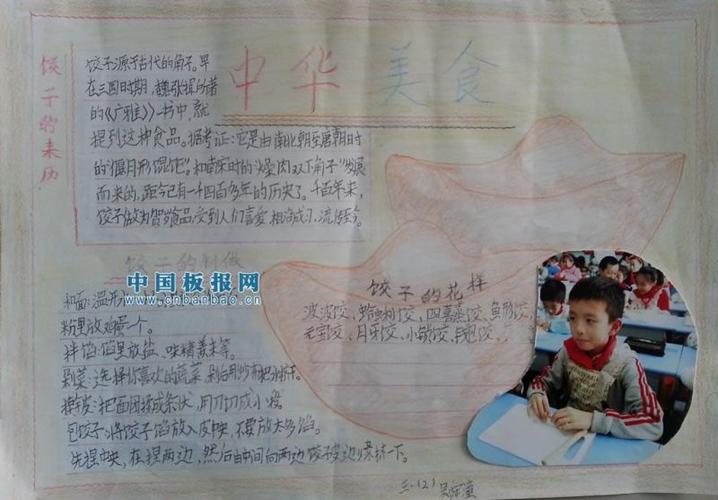 中华美食
饺子的来历
饺子源于古代的角子。早
在三国时期,魏张揖所著
的《广雅》一书中,就
提到这种食品。据考证:它是由南北朝至唐朝时
的"偃月形馄饨"和南宋时的"燥肉双下角子"发展
而来的,距今已有一千四百多年的历史了。千百年来,
饺子做为贺岁食品,受到人们喜爱,相沿成习,流传至今。
饺子的制做
中国板报网
www.cnbanbao.cn
和面:温开
粉里放鸡蛋一个。
拌馅:馅里放盐、味精姜末等。
剁菜:选择你喜欢的蔬菜,剁后用纱布把水挤干。
擀皮:把面团揉成条状,用刀切成小段。
包饺子:将饺子馅放入皮中央,不要放太多馅。
先捏中央,在捏两边,然后由中间向两边饺子皮边缘挤一下。
饺子的花样
波波饺、蜘蛛饺、四喜蒸饺、鱼形饺、
元宝饺、月牙饺、小 饺、 饺、
三.(2)吴